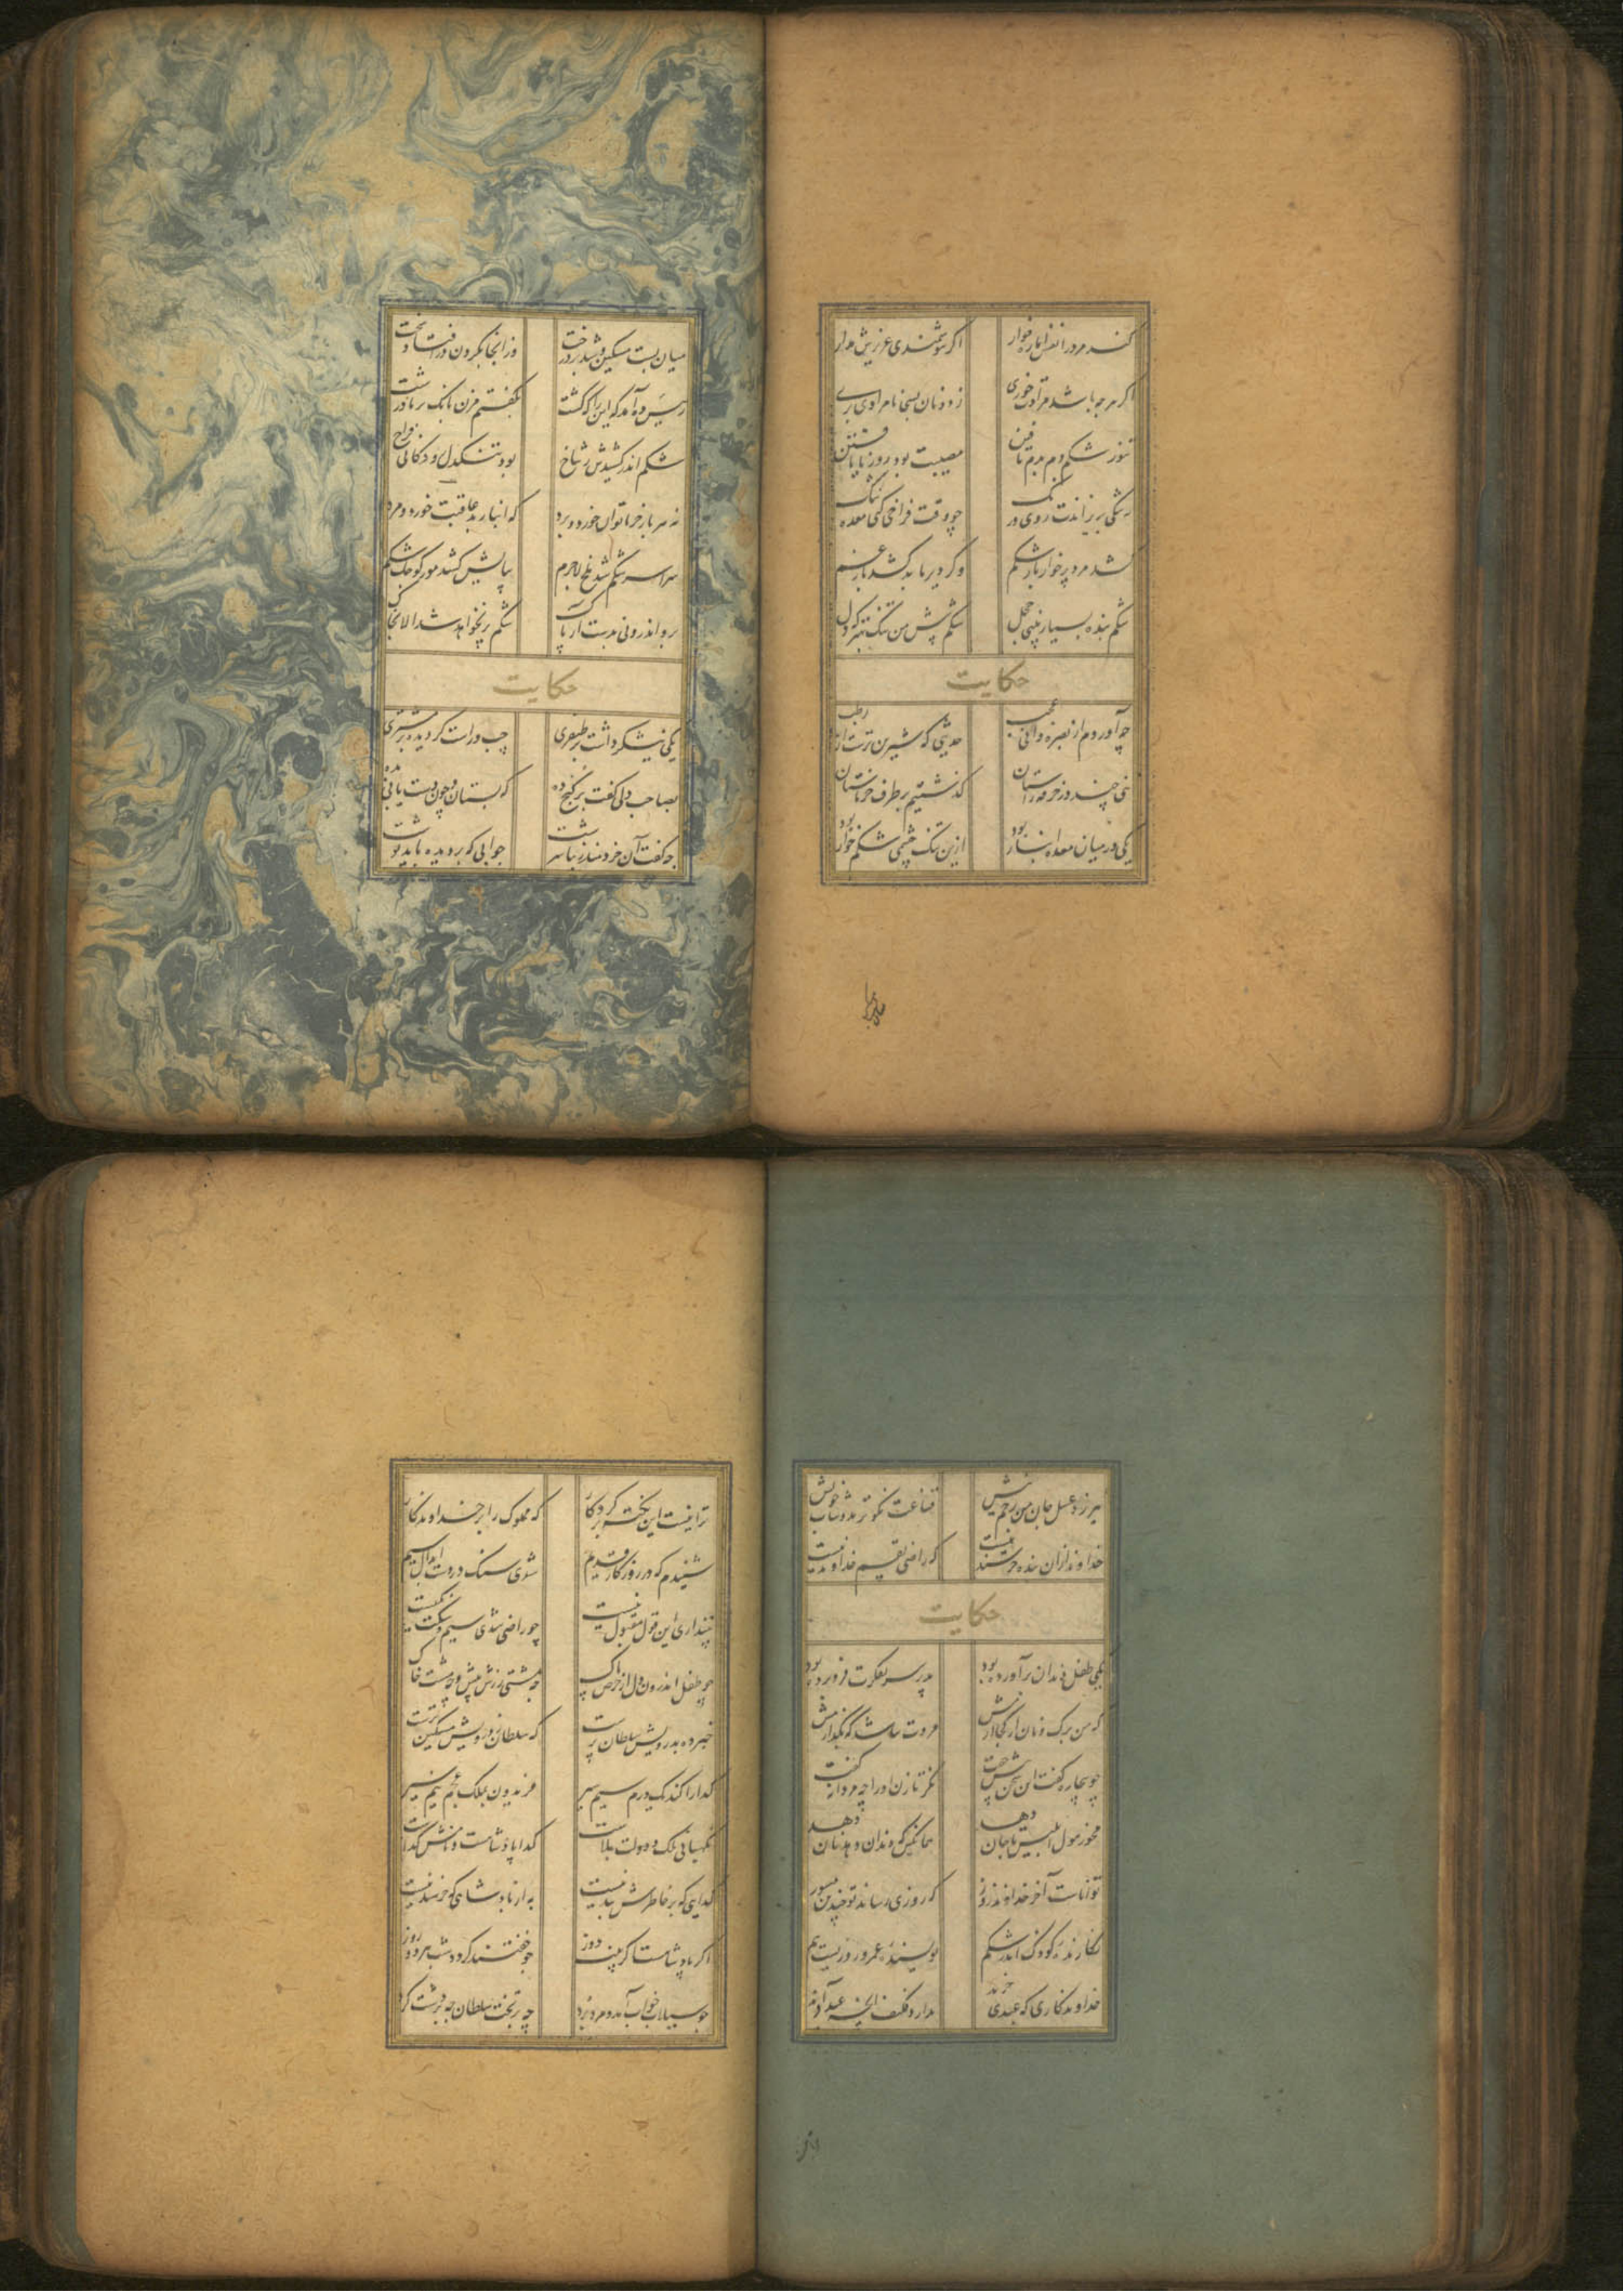 کند مرد را نفس اماره خوار اگر هوشمندی عزیزش مدار
اگر هرچه باشد مرادت خوری ز دونان بسی نامرادی بری
تنور شکم دم بدم تافتن مصیبت بود روز نایافتن
به تنگی بریزاندت روی رنگ چو وقت فراخی کنی معده تنگ
کشد مرد پرخوار بار شکم وگر در نیابد کشد بار غم
شکم بنده بسیار بینی خجل شکم پیش من تنگ بهتر که دل
حکایت
چه آوردم از بصره دانی عجب حدیثی که شیرین ترست از رطب
تنی چند در خرقه راستان گذشتیم بر طرف خرماستان
یکی در میان معده انبار بود ازین تنگ چشمی شکم خوار بود
میان بست مسکین و شد بر درخت وز آنجا بگردن در افتاد سخت
رئیس ده آمد که این را که کشت بگفتم مزن بانگ بر ما درشت
شکم اندر کشیدش ز شاخ بود تنگدل رودکانی فراخ
نه هر بار خرما توان خورد و برد که انبار بد عاقبت خورد و مرد
سراسر شکم شد ملخ لاجرم بپایش کشد مور کوچک شکم
برو اندرونی بدست آر پاک شکم پر نخواهد شد الا بخاک
حکایت
یکی نیشکر داشت بر طیفری چپ و راست گردیده بر مشتری
بصاحب دلی گفت در کنج ده که بستان و چون دست یابی بده
چه گفت آن خردمند زیبا سرشت جوابی که بر دیده باید نوشت
عسل جان من زخم نیش قناعت نکوتر بدوشاب خویش
خداوند ازان بنده خرسند نیست که راضی بقسم خداوند نیست
حکایت
یکی طفل دندان برآورده بود پدر سر بفکرت فرو برده بود
که من برگ و نان از کجا آرمش مروت نباشد که بگذارمش
چو بیچاره گفت این سخن پیش جفت نگر تا زن او را چه مردانه گفت
مخور هول ابلیس تا جان دهد همانکس که دندان دهد نان دهد
تواناست آخر خداوند روز که روزی رساند تو چندین مسوز
نگارنده کودک اندر شکم نویسنده عمر و روزیست هم
خداوندگاری که عبدی خرید بدارد فکیف آنکه عبد آفرید
ترا نیست این تکیه بر کردگار که مملوک را بر خداوندگار
شنیدم که در روزگار قدیم شدی سنگ در دست ابدال سیم
نپنداری این قول معقول نیست چو راضی شدی سیم و سنگت یکیست
چو طفل اندرون دل از حرص پاک چه مشتی زرش پیش و چه مشت خاک
خبر ده بدرویش سلطان پرست که سلطان ز درویش مسکین ترست
گدا را کند یک درم سیم سیر فریدون بملک عجم نیم سیر
نگهبانی ملک و دولت بلاست گدا پادشاست و نامش گداست
گدایی که بر خاطرش بند نیست به از پادشاهی که خرسند نیست
اگر پادشاهست اگر پینه دوز چو خفتند گردد شب هر دو روز
چو سیلاب خواب آمد و مرد برد چه بر تخت سلطان چه بر دشت کرد